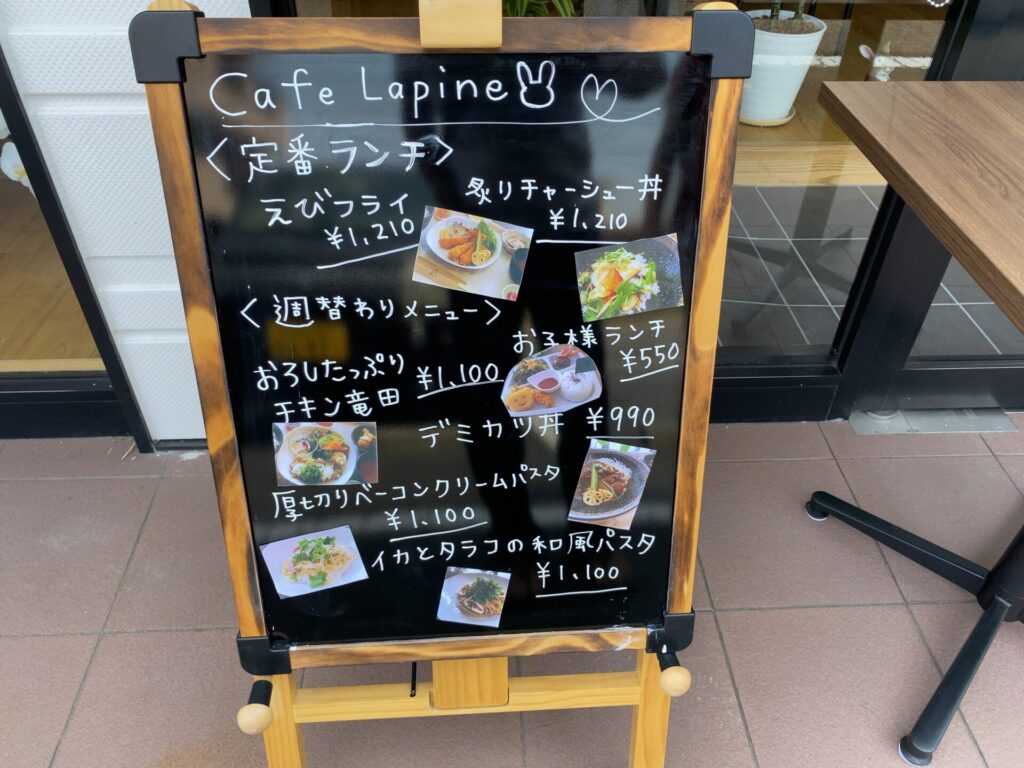 Cafe Lapine
〈定番ランチ〉
えびフライ
¥1,210
炙りチャーシュー丼
¥1,210
〈週替わりメニュー〉
お子様ランチ
¥550
おろしたっぷり
チキン竜田
¥1,100
デミカツ丼 ¥990
厚切りベーコンクリームパスタ
¥1,100
イカとタラコの和風パスタ
¥1,100